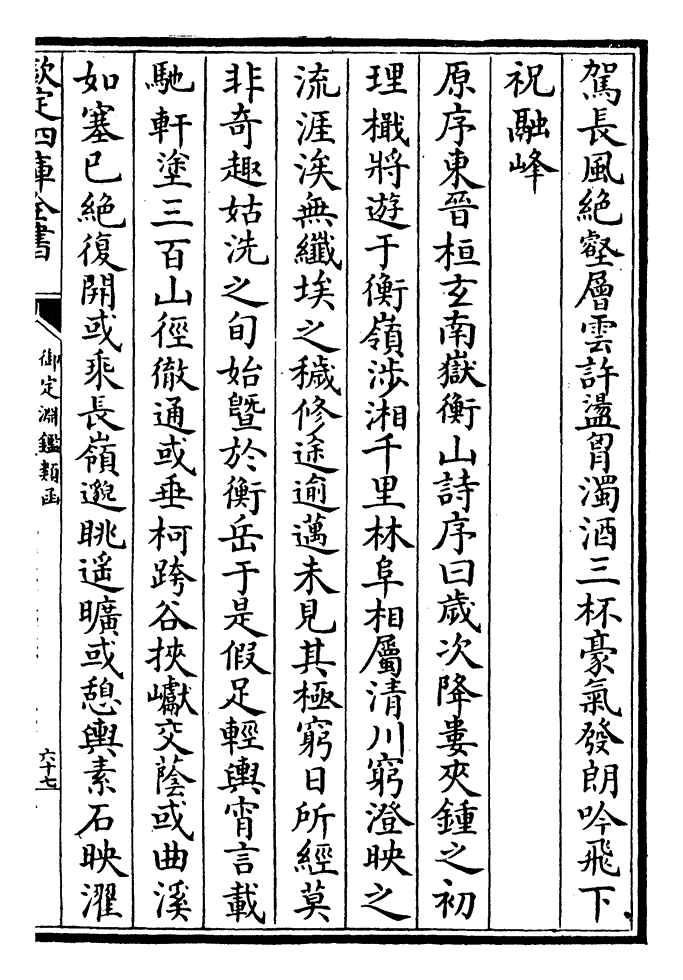 駕長風絶壑層雲許盪胷濁酒三杯豪氣發朗吟飛下
祝融峰
原序東晉桓玄南嶽衡山詩序曰歲次降婁夾鍾之初
理檝將遊于衡嶺涉湘千里林阜相屬清川窮澄映之
流涯涘無纖埃之穢修途逾邁未見其極窮日所經莫
非奇趣姑洗之旬始暨於衡岳于是假足輕輿宵言載
馳軒塗三百山徑徹通或垂柯跨谷挾巘交蔭或曲溪
如塞已絶復開或乘長嶺邈眺遥曠或憩輿素石映濯
欽定四庫全書
御定淵鑑類函
六十七